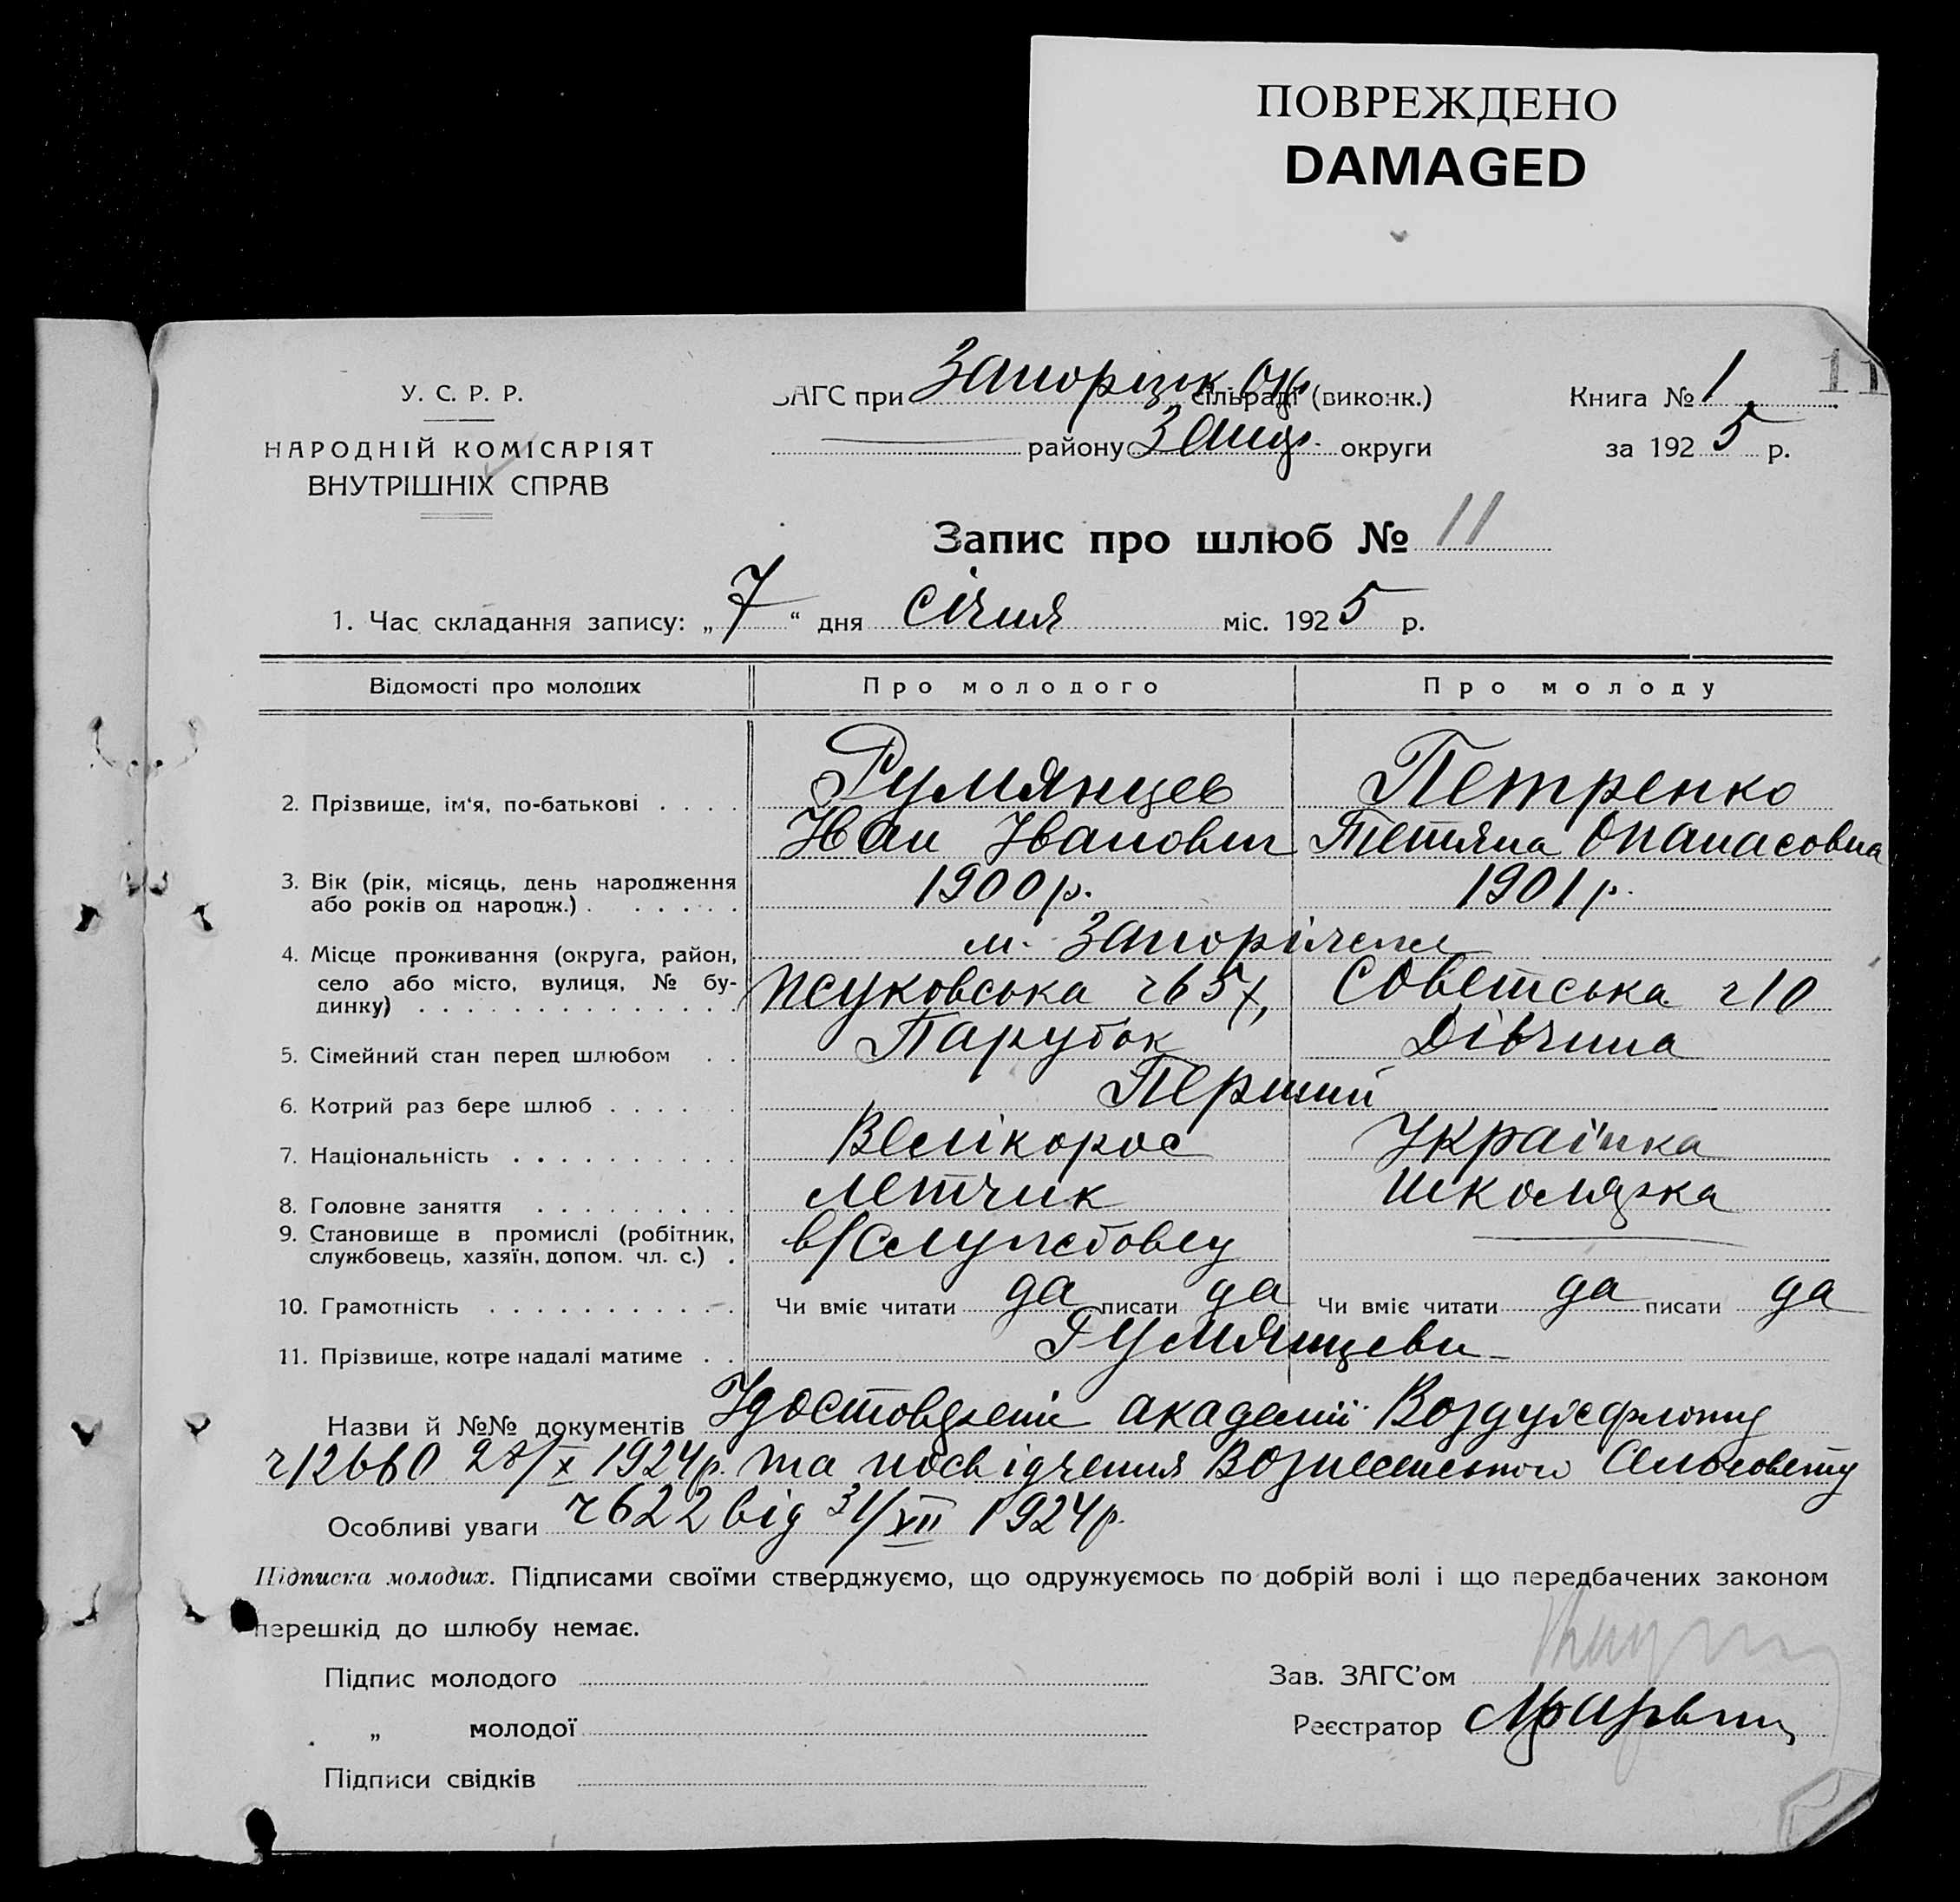 ПОВРЕЖДЕНО
DAMAGED
11
У. С. Р. Р.
НАРОДНІЙ КОМІСАРІЯТ
ВНУТРІШНІХ СПРАВ
ЗАГС при Запорізьк Окр сільраді (виконк.)
району Запор. округи
Книга № 1
за 1925 р.
Запис про шлюб № 11
1. Час складання запису: „7“ дня січня міс. 1925 р.
Відомості про молодих Про молодого Про молоду
2. Прізвище, ім'я, по-батькові . . . . Румянцев Петренко
Іван Іванович Тетяна Опанасовна
3. Вік (рік, місяць, день народження
або років од народж.) . . . . . . 1900 р. 1901 р.
4. Місце проживання (округа, район, м. Запоріжжя
село або місто, вулиця, № будинку) . . . Жуковська ч 65 Советська ч 10
5. Сімейний стан перед шлюбом . . Парубок Дівчина
6. Котрий раз бере шлюб . . . . . . Перший
7. Національність . . . . . . . . . . Велікорос Українка
8. Головне заняття . . . . . . . . . Летчик Школярка
9. Становище в промислі (робітник,
службовець, хазяїн, допом. чл. с.) . в/службовец
10. Грамотність . . . . . . . . . . . Чи вміє читати да писати да Чи вміє читати да писати да
11. Прізвище, котре надалі матиме . . Румянцеви
Назви й №№ документів Удостоверені академії Воздухфлоту
ч 12660 28/X 1924р. та посвідчення Вознесенського Сельсовету
Особливі уваги ч 622 від 31/XII 1924р.
Підписка молодих. Підписами своїми стверджуємо, що одружуємось по добрій волі і що передбачених законом
перешкід до шлюбу немає.
Підпис молодого
„ молодої
Підписи свідків
Зав. ЗАГС'ом
Реєстратор